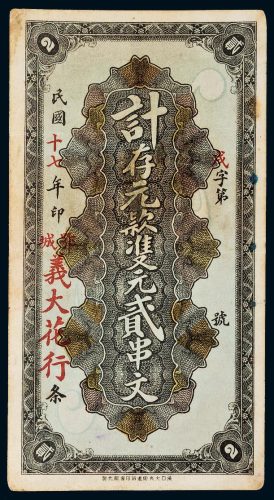 2 貳
字第 號
計存元款準兌元貳串文
民國十七年印
鄂城 義大花行条